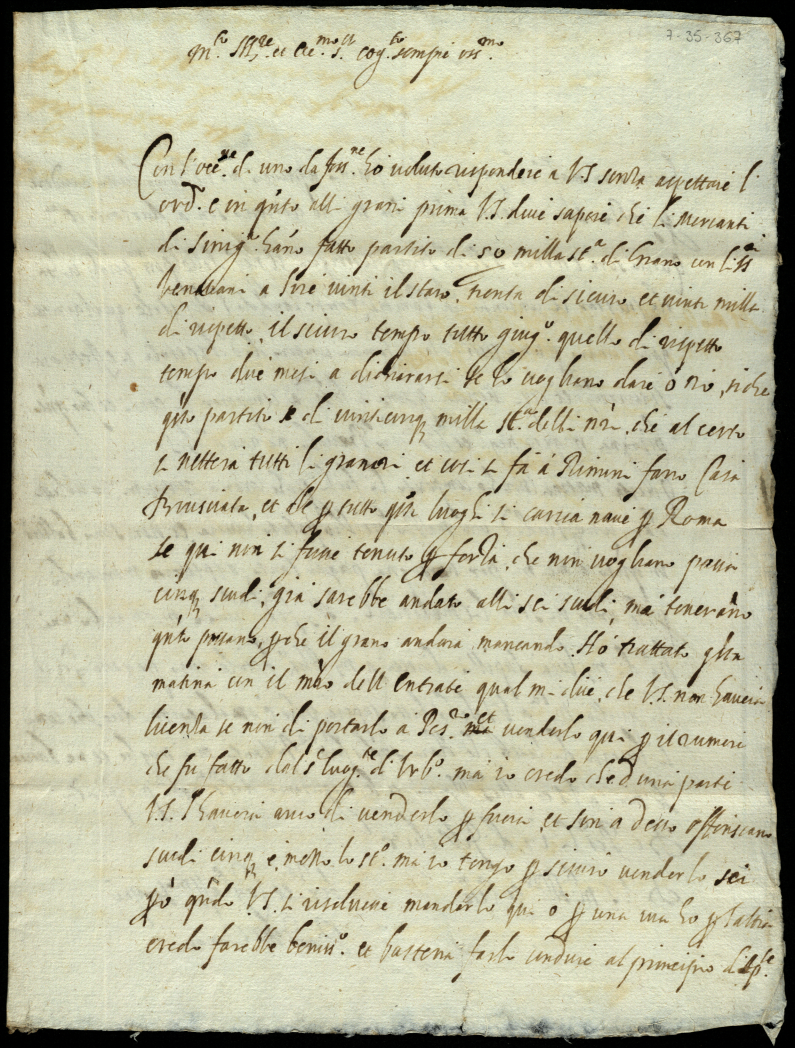 7-35-367
m.to Ill.re et Ecc.mo S.r Cog.to sempre oss.mo
Con l'occ.ne di uno da foss.ne hò voluto rispondere a V.S. senza aspettare l'
ord.o e in q̃nto alli grani prima V.S. deve sapere che li Mercanti
di Sinig.a hãno fatto partito di 50 milla st.a di Grano con li ss.ri
a lire vinti il staro, trenta di sicuro et vinti milla
di rispetto, il sicuro tempo tutto giug.o quello di rispetto
tempo due mesi a dichiararsi se lo vogliano dare ò nò, siche
q̃sto partito è di vinticinq; milla st.a delli nr̃i, che al certo
si nettera tutti li granari et così si fà à Rimini farro Casa
Brusciata, et che ꝑ tutto q̃sti luoghi si carica nave ꝑ Roma
se qui non si fusse tenuto ꝑ forza, che non vogliano passi
cinq; scudi, già sarebbe andato alli sei scudi, mà tenerãno
q̃nto possano, ꝑche il grano andarà mancando. Hò trattato q̃sta
matina con il m̃ro dell'Entrate qual mi dice, che V.S. non haveria
licenza se non di portarlo a Pes.ro et venderlo qui ꝑ il rumore
che fu fatto dal S.r luog.te di Urb.o mà io credo che d'una parte
V.S. l'haveria anco di venderlo ꝑ fuori, et sin a desso offeriscano
scudi cinq; e mezzo lo st.o mà io tengo ꝑ sicuro venderlo sei
ꝑò q̃ndo V.S. si risolvesse mandarlo qui ò ꝑ una via ho ꝑ l'altra
credo farebbe beniss.o et bastera farlo condure al principio d'Ap.le